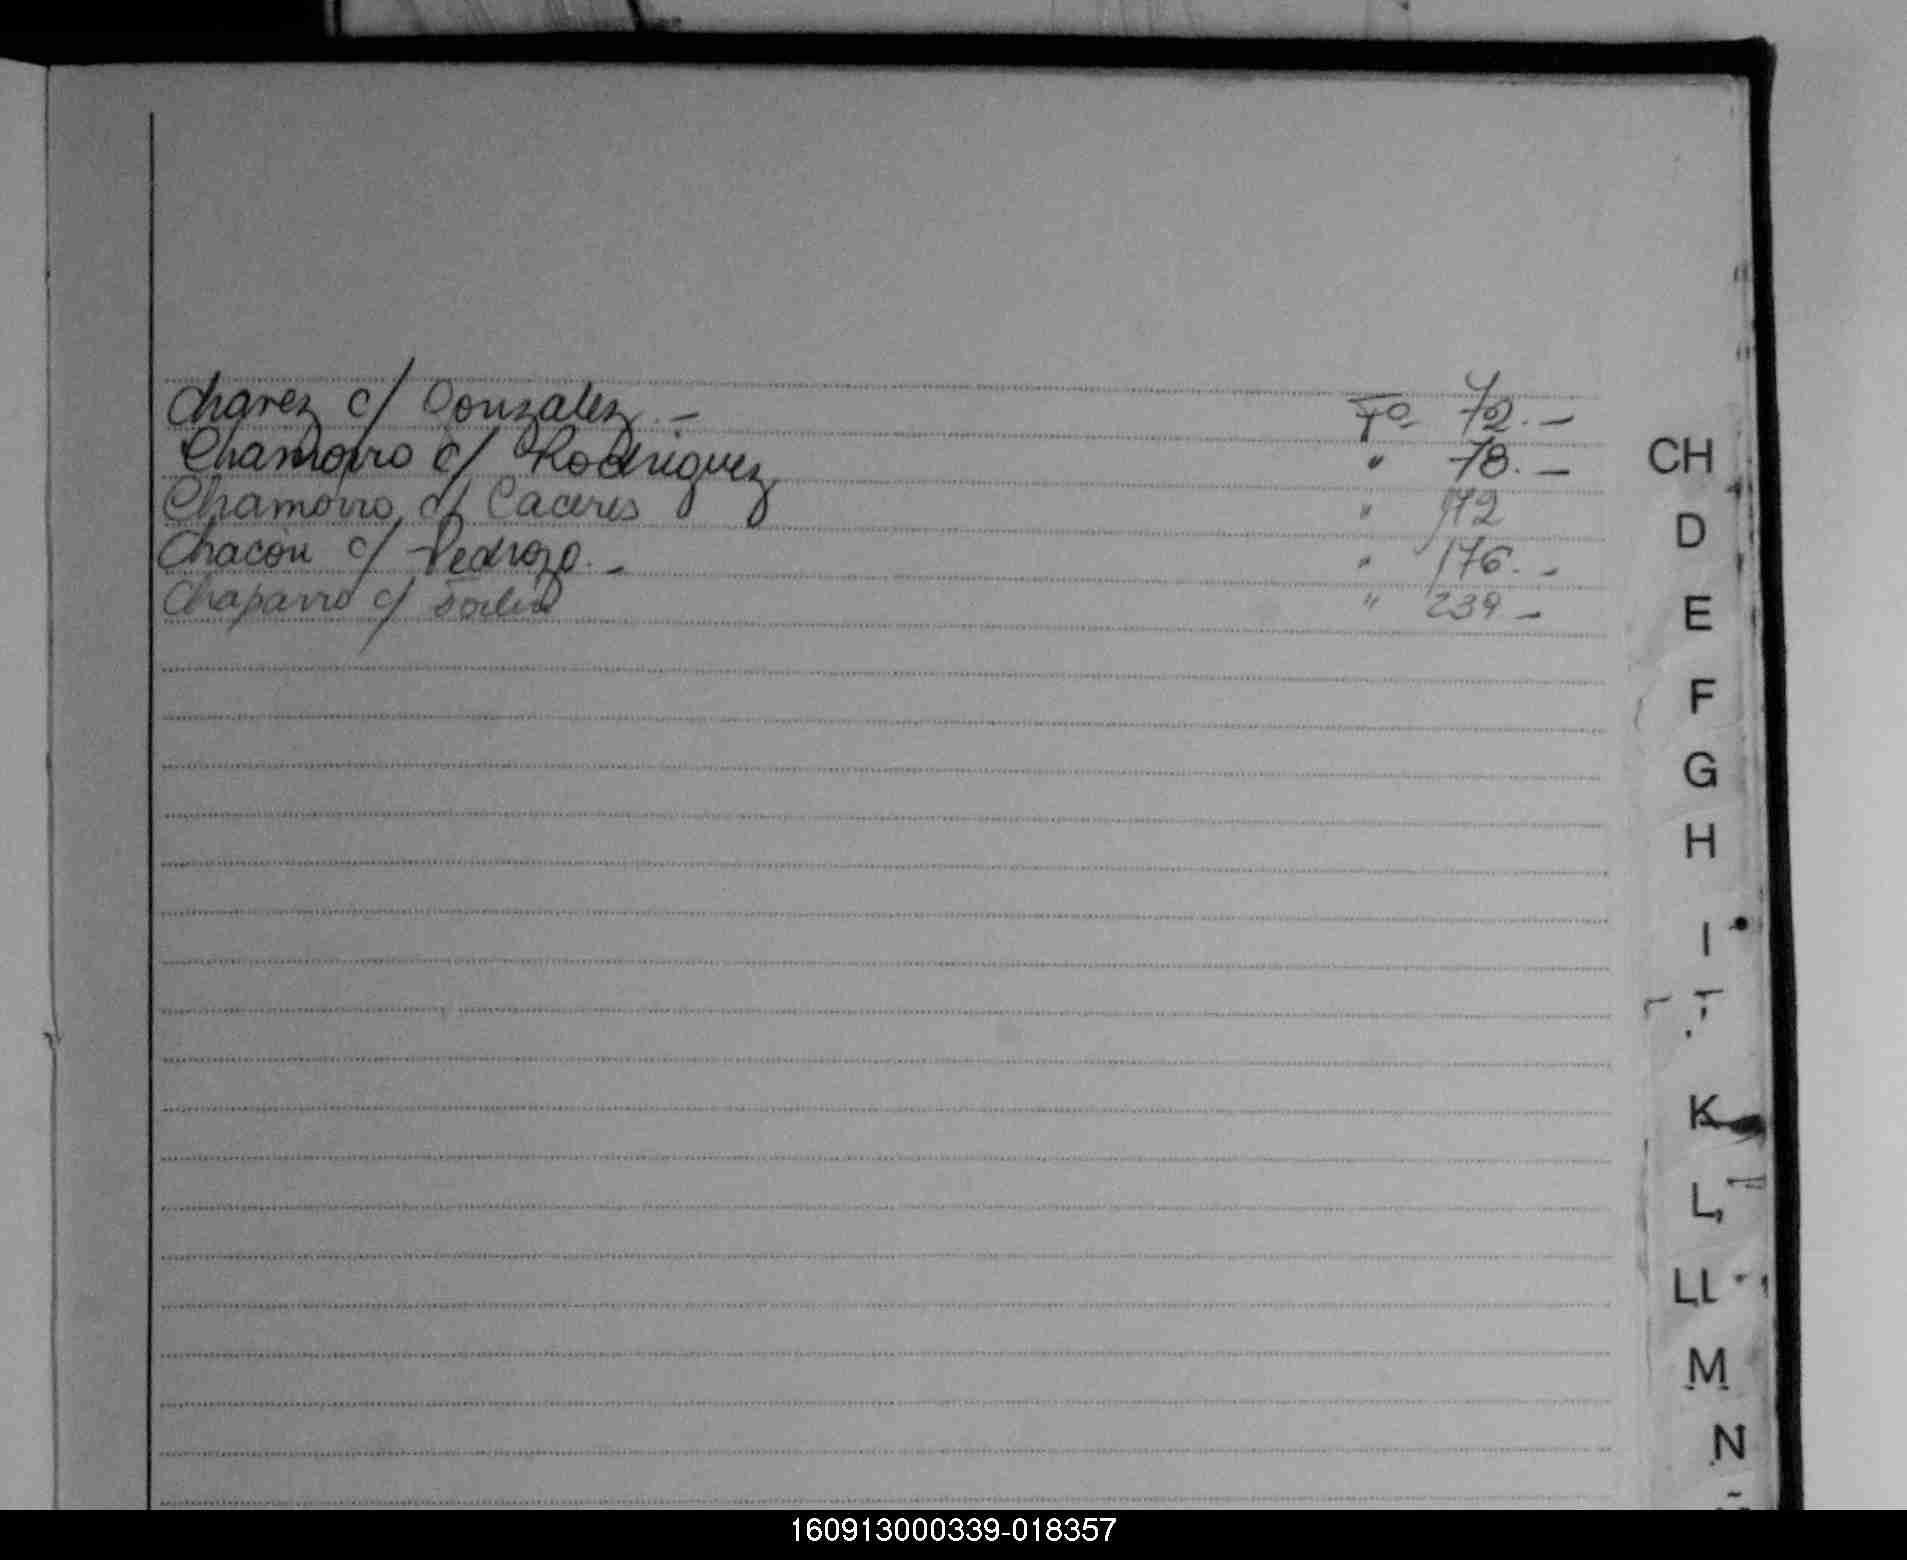 Chavez c/ Gonzalez.- Fº 72.-
Chamorro c/ Rodriguez " 78.-
Chamorro c/ Caceres " 172
Chacón c/ Pedrozo.- " 176.-
Chaparro c/ " 239-
CH
D
E
F
G
H
I
K
L
LL
M
N
160913000339-018357